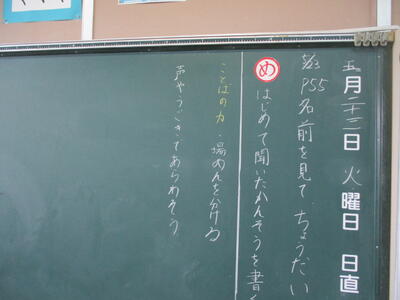 五月二十三日 火曜日 日直
5/23 P55 名前を見てちょうだい
め はじめて聞いたかんそうを書く
ことばの力 ・場めんを分ける
声やうごきであらわそう